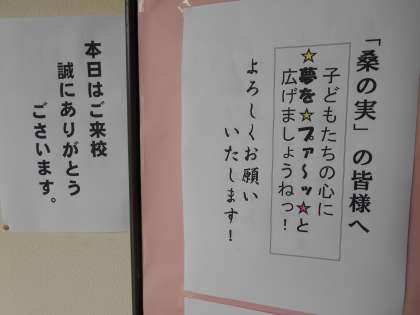 「桑の実」の皆様へ
子どもたちの心に
☆夢を☆ブァ～ッ☆と
広げましょうねっ!
よろしくお願い
いたします!
本日はご来校
誠にありがとう
ございます。